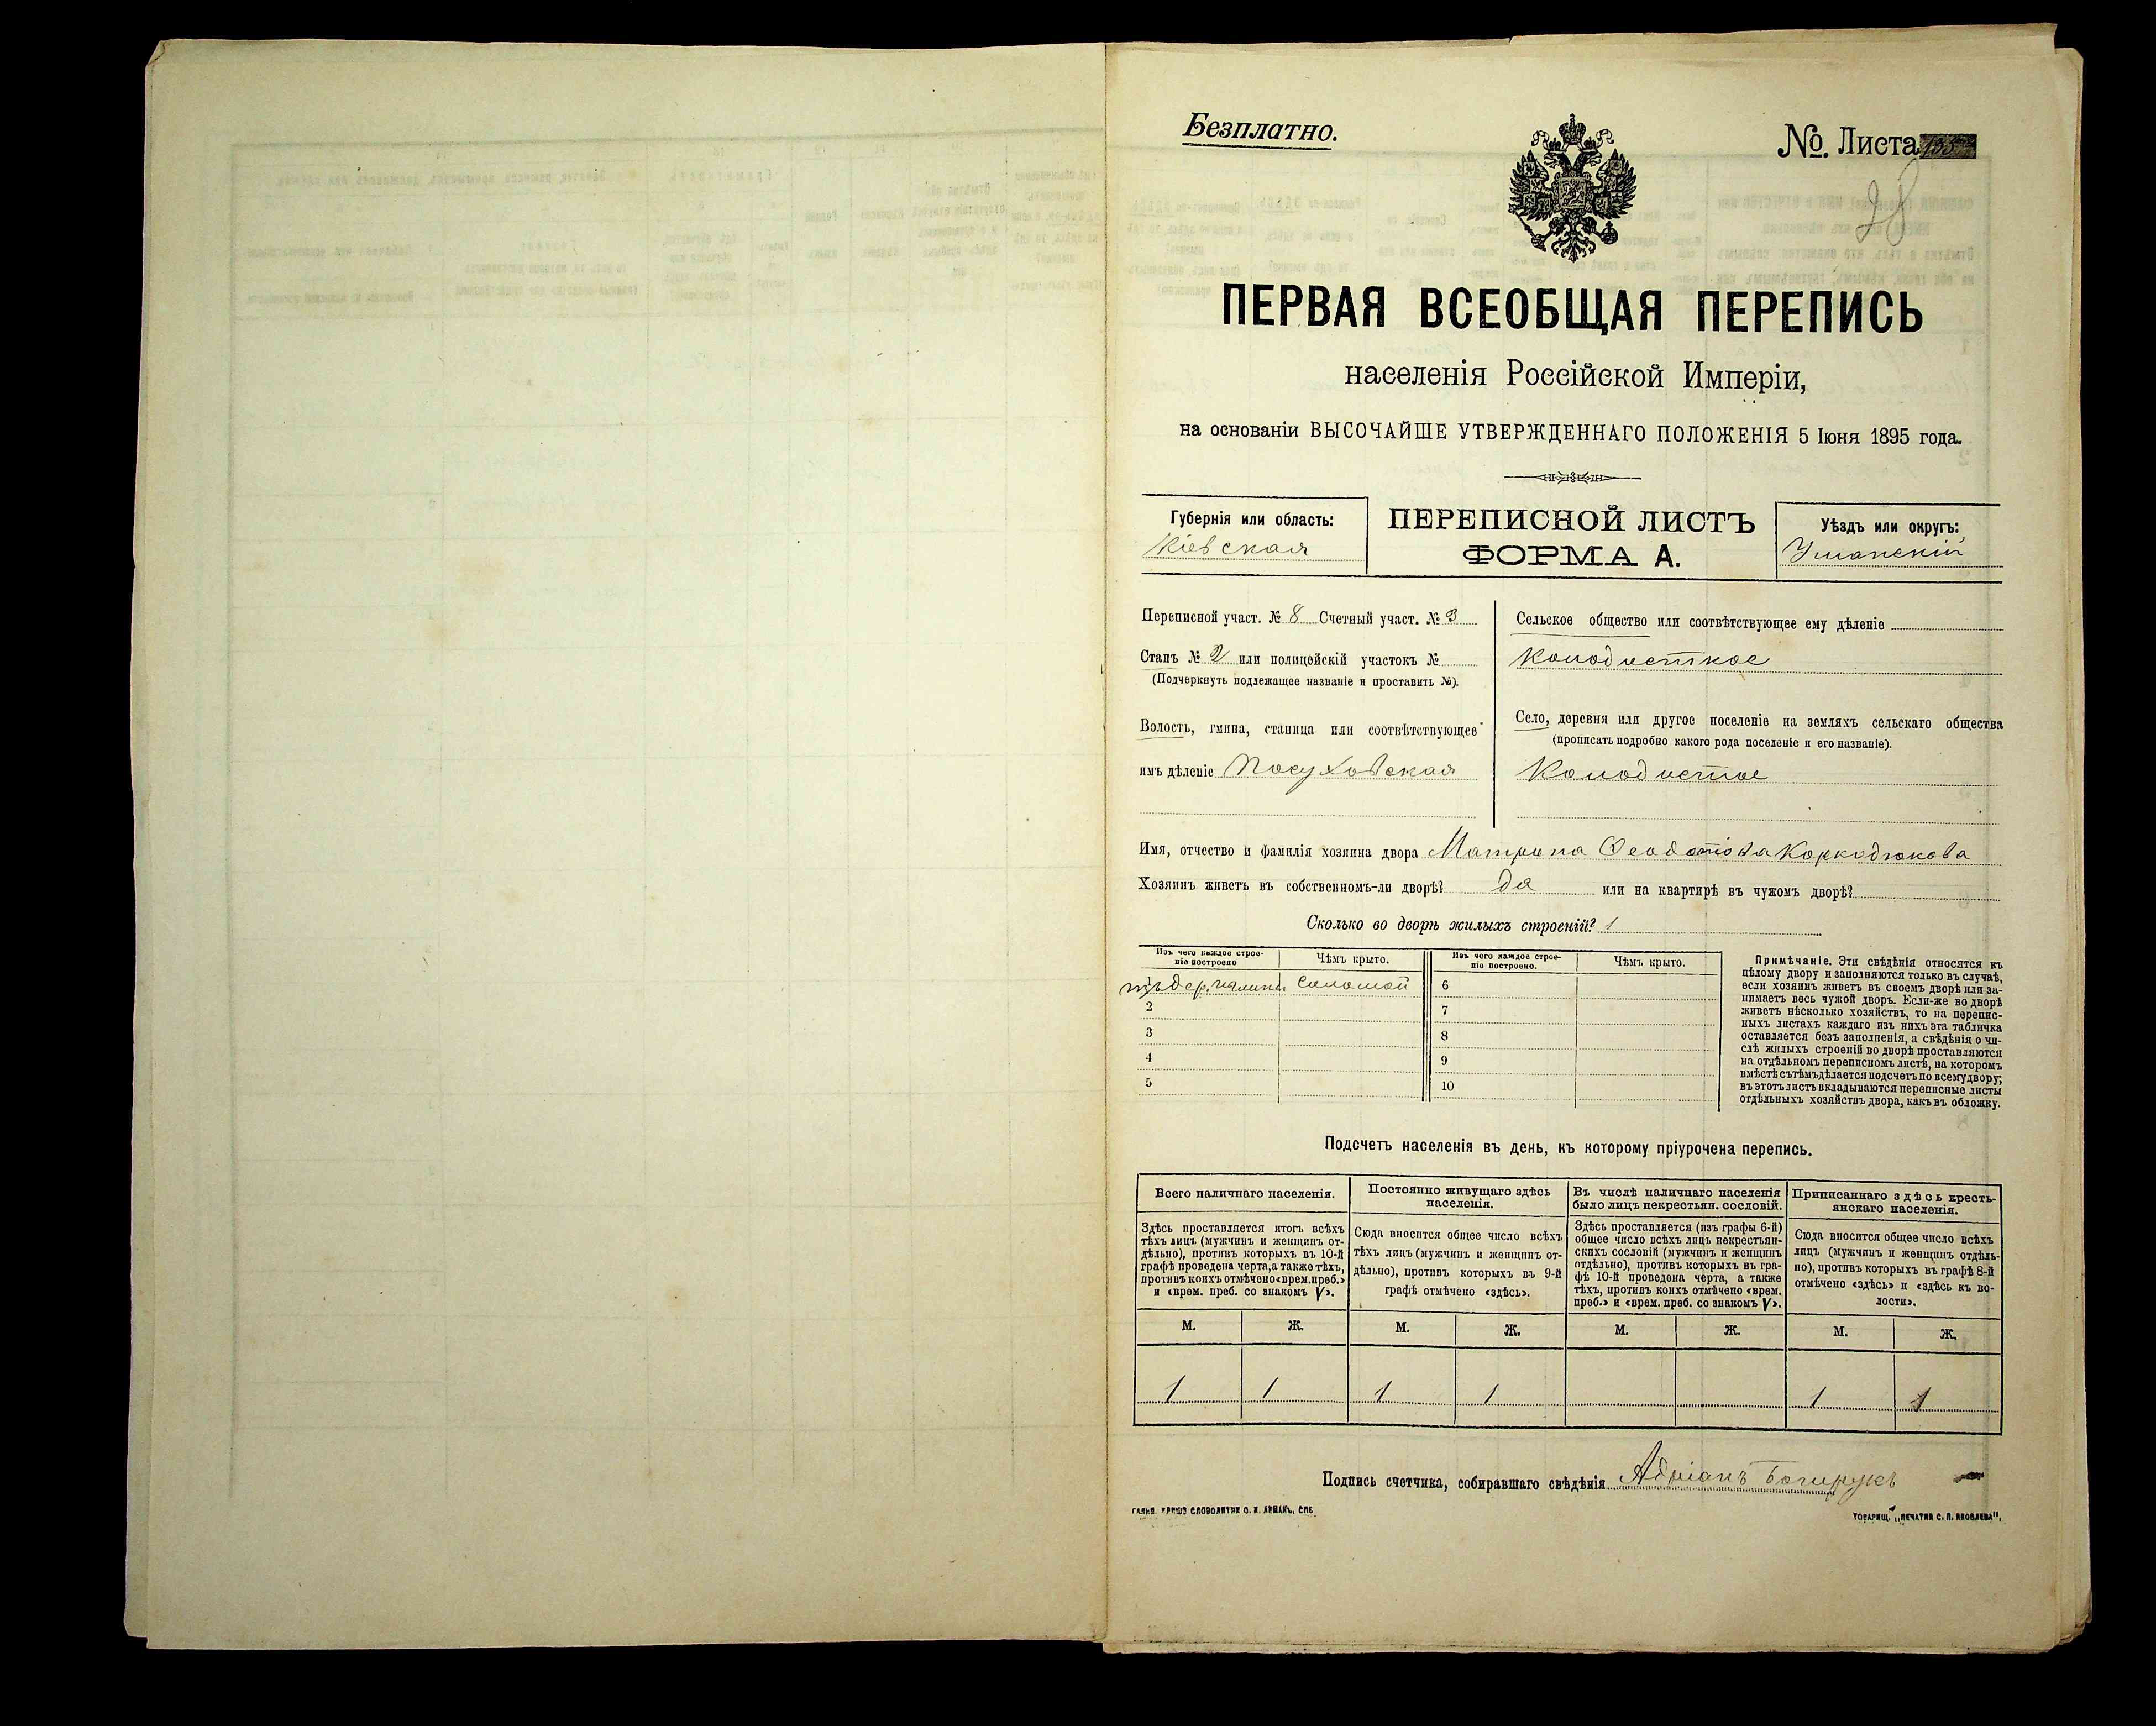 Безплатно.
No. Листа 135
28
ПЕРВАЯ ВСЕОБЩАЯ ПЕРЕПИСЬ
населенія Россійской Имперіи,
на основаніи ВЫСОЧАЙШЕ УТВЕРЖДЕННАГО ПОЛОЖЕНІЯ 5 Іюня 1895 года.
Губернія или область:
Кіевская
ПЕРЕПИСНОЙ ЛИСТЪ
ФОРМА А.
Уѣздъ или округъ:
Уманскій
Переписной участ. № 8 Счетный участ. № 3
Станъ № 2 или полицейскій участокъ №
(Подчеркнуть подлежащее названіе и проставить №).
Волость, гмина, станица или соотвѣтствующее
имъ дѣленіе Посуховская
Сельское общество или соотвѣтствующее ему дѣленіе
Колодисткое
Село, деревня или другое поселеніе на земляхъ сельскаго общества
(прописать подробно какого рода поселеніе и его названіе).
Колодистое
Имя, отчество и фамилія хозяина двора Матрона Феодотова Коркодюкова
Хозяинъ живетъ въ собственномъ-ли дворѣ? да или на квартирѣ въ чужомъ дворѣ?
Сколько во дворѣ жилыхъ строеній? 1
Изъ чего каждое строе-
ніе построено
Чѣмъ крыто.
Изъ чего каждое строе-
ніе построено.
Чѣмъ крыто.
изъ дер. глины. Соломой
6
2
7
3
8
4
9
5
10
Примѣчаніе. Эти свѣдѣнія относятся къ
цѣлому двору и заполняются только въ случаѣ,
если хозяинъ живетъ въ своемъ дворѣ или за-
нимаетъ весь чужой дворъ. Если-же во дворѣ
живетъ нѣсколько хозяйствъ, то на перепис-
ныхъ листахъ каждаго изъ нихъ эта табличка
оставляется безъ заполненія, а свѣдѣнія о чи-
слѣ жилыхъ строеній во дворѣ проставляются
на отдѣльномъ переписномъ листѣ, на которомъ
вмѣстѣ съ тѣмъ дѣлается подсчетъ по всему двору;
въ этотъ листъ вкладываются переписные листы
отдѣльныхъ хозяйствъ двора, какъ въ обложку.
Подсчетъ населенія въ день, къ которому пріурочена перепись.
Всего наличнаго населенія.
Здѣсь проставляется итогъ всѣхъ
тѣхъ лицъ (мужчинъ и женщинъ от-
дѣльно), противъ которыхъ въ 10-й
графѣ проведена черта, а также тѣхъ,
противъ коихъ отмѣчено «врем. преб.»
и «врем. преб. со знакомъ V».
Постоянно живущаго здѣсь
населенія.
Сюда вносится общее число всѣхъ
тѣхъ лицъ (мужчинъ и женщинъ от-
дѣльно), противъ которыхъ въ 9-й
графѣ отмѣчено «здѣсь».
Въ числѣ наличнаго населенія
было лицъ некрестьян. сословій.
Здѣсь проставляется (изъ графы 6-й)
общее число всѣхъ лицъ некрестьян-
скихъ сословій (мужчинъ и женщинъ
отдѣльно), противъ которыхъ въ гра-
фѣ 10-й проведена черта, а также
тѣхъ, противъ коихъ отмѣчено «врем.
преб.» и «врем. преб. со знакомъ V».
Приписаннаго здѣсь кресть-
янскаго населенія.
Сюда вносится общее число всѣхъ
лицъ (мужчинъ и женщинъ отдѣль-
но), противъ которыхъ въ графѣ 8-й
отмѣчено «здѣсь» и «здѣсь къ во-
лости».
М. Ж. М. Ж. М. Ж. М. Ж.
1 1 1 1 1 1
Подпись счетчика, собиравшаго свѣдѣнія Адріанъ
ТОВАРИЩ. „ПЕЧАТНЯ С. П. ЯКОВЛЕВА".